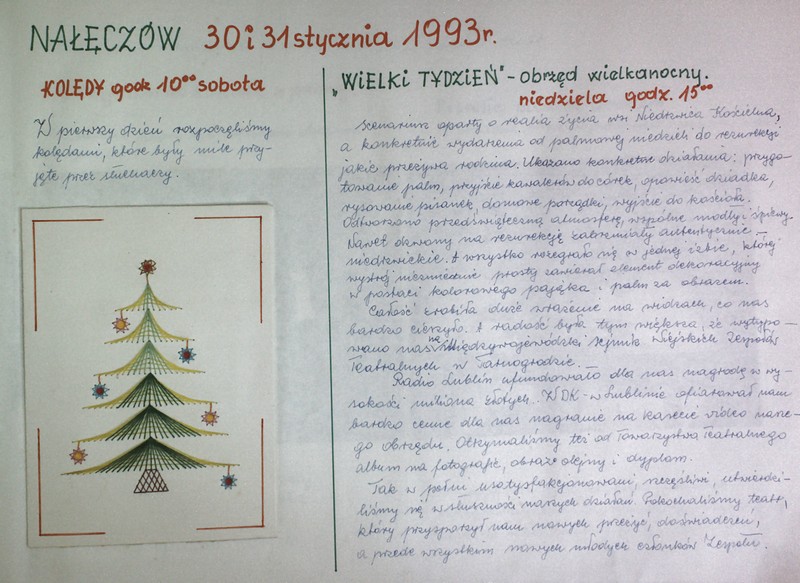 NAŁĘCZÓW 30 i 31 stycznia 1993r.
KOLĘDY godz 10⁰⁰ sobota
W pierwszy dzień rozpoczęliśmy
kolędami, które były mile przy-
jęte przez słuchaczy.
"WIELKI TYDZIEŃ" - obrzęd wielkanocny.
niedziela godz. 15⁰⁰
Scenariusz oparty o realia życia wsi Niedrzwica Kościelna,
a konkretnie wydarzenia od palmowej niedzieli do rezurekcji
jakie przeżywa rodzina. Ukazano konkretne działania: przygo-
towanie palm, przyjście kawalerów do córek, opowieść dziadka,
rysowanie pisanek, domowe porządki, wyjście do kościoła.
Odtworzono przedświąteczną atmosferę, wspólne modlty i śpiewy.
Nawet dzwony na rezurekcję zabrzmiały autentycznie -
niedrzwickie. A wszystko rozegrało się w jednej izbie, której
wystrój niezmiernie prosty zawierał element dekoracyjny
w postaci kolorowego pająka i palm za obrazem.
Całość zrobiła duże wrażenie na widzach, co nas
bardzo cieszyło. A radość była tym większa, że wytypo-
wano nas na Międzywojewódzki Sejmik Wiejskich Zespołów
Teatralnych w Tarnogrodzie.
Radio Lublin ufundowało dla nas nagrodę w wy-
sokości miliona złotych. WDK - w Lublinie ofiarował nam
bardzo cenne dla nas nagranie na kasecie video nasze-
go obrzędu. Otrzymaliśmy też od Towarzystwa Teatralnego
album na fotografie, obraz olejny i dyplom.
Tak w pełni usatysfakcjonowani, szczęśliwi, utwierdzi-
liśmy się w słuszności naszych działań. Pokochaliśmy teatr,
który przysporzył nam nowych przeżyć, doświadczeń,
a przede wszystkim nowych młodych członków Zespołu.